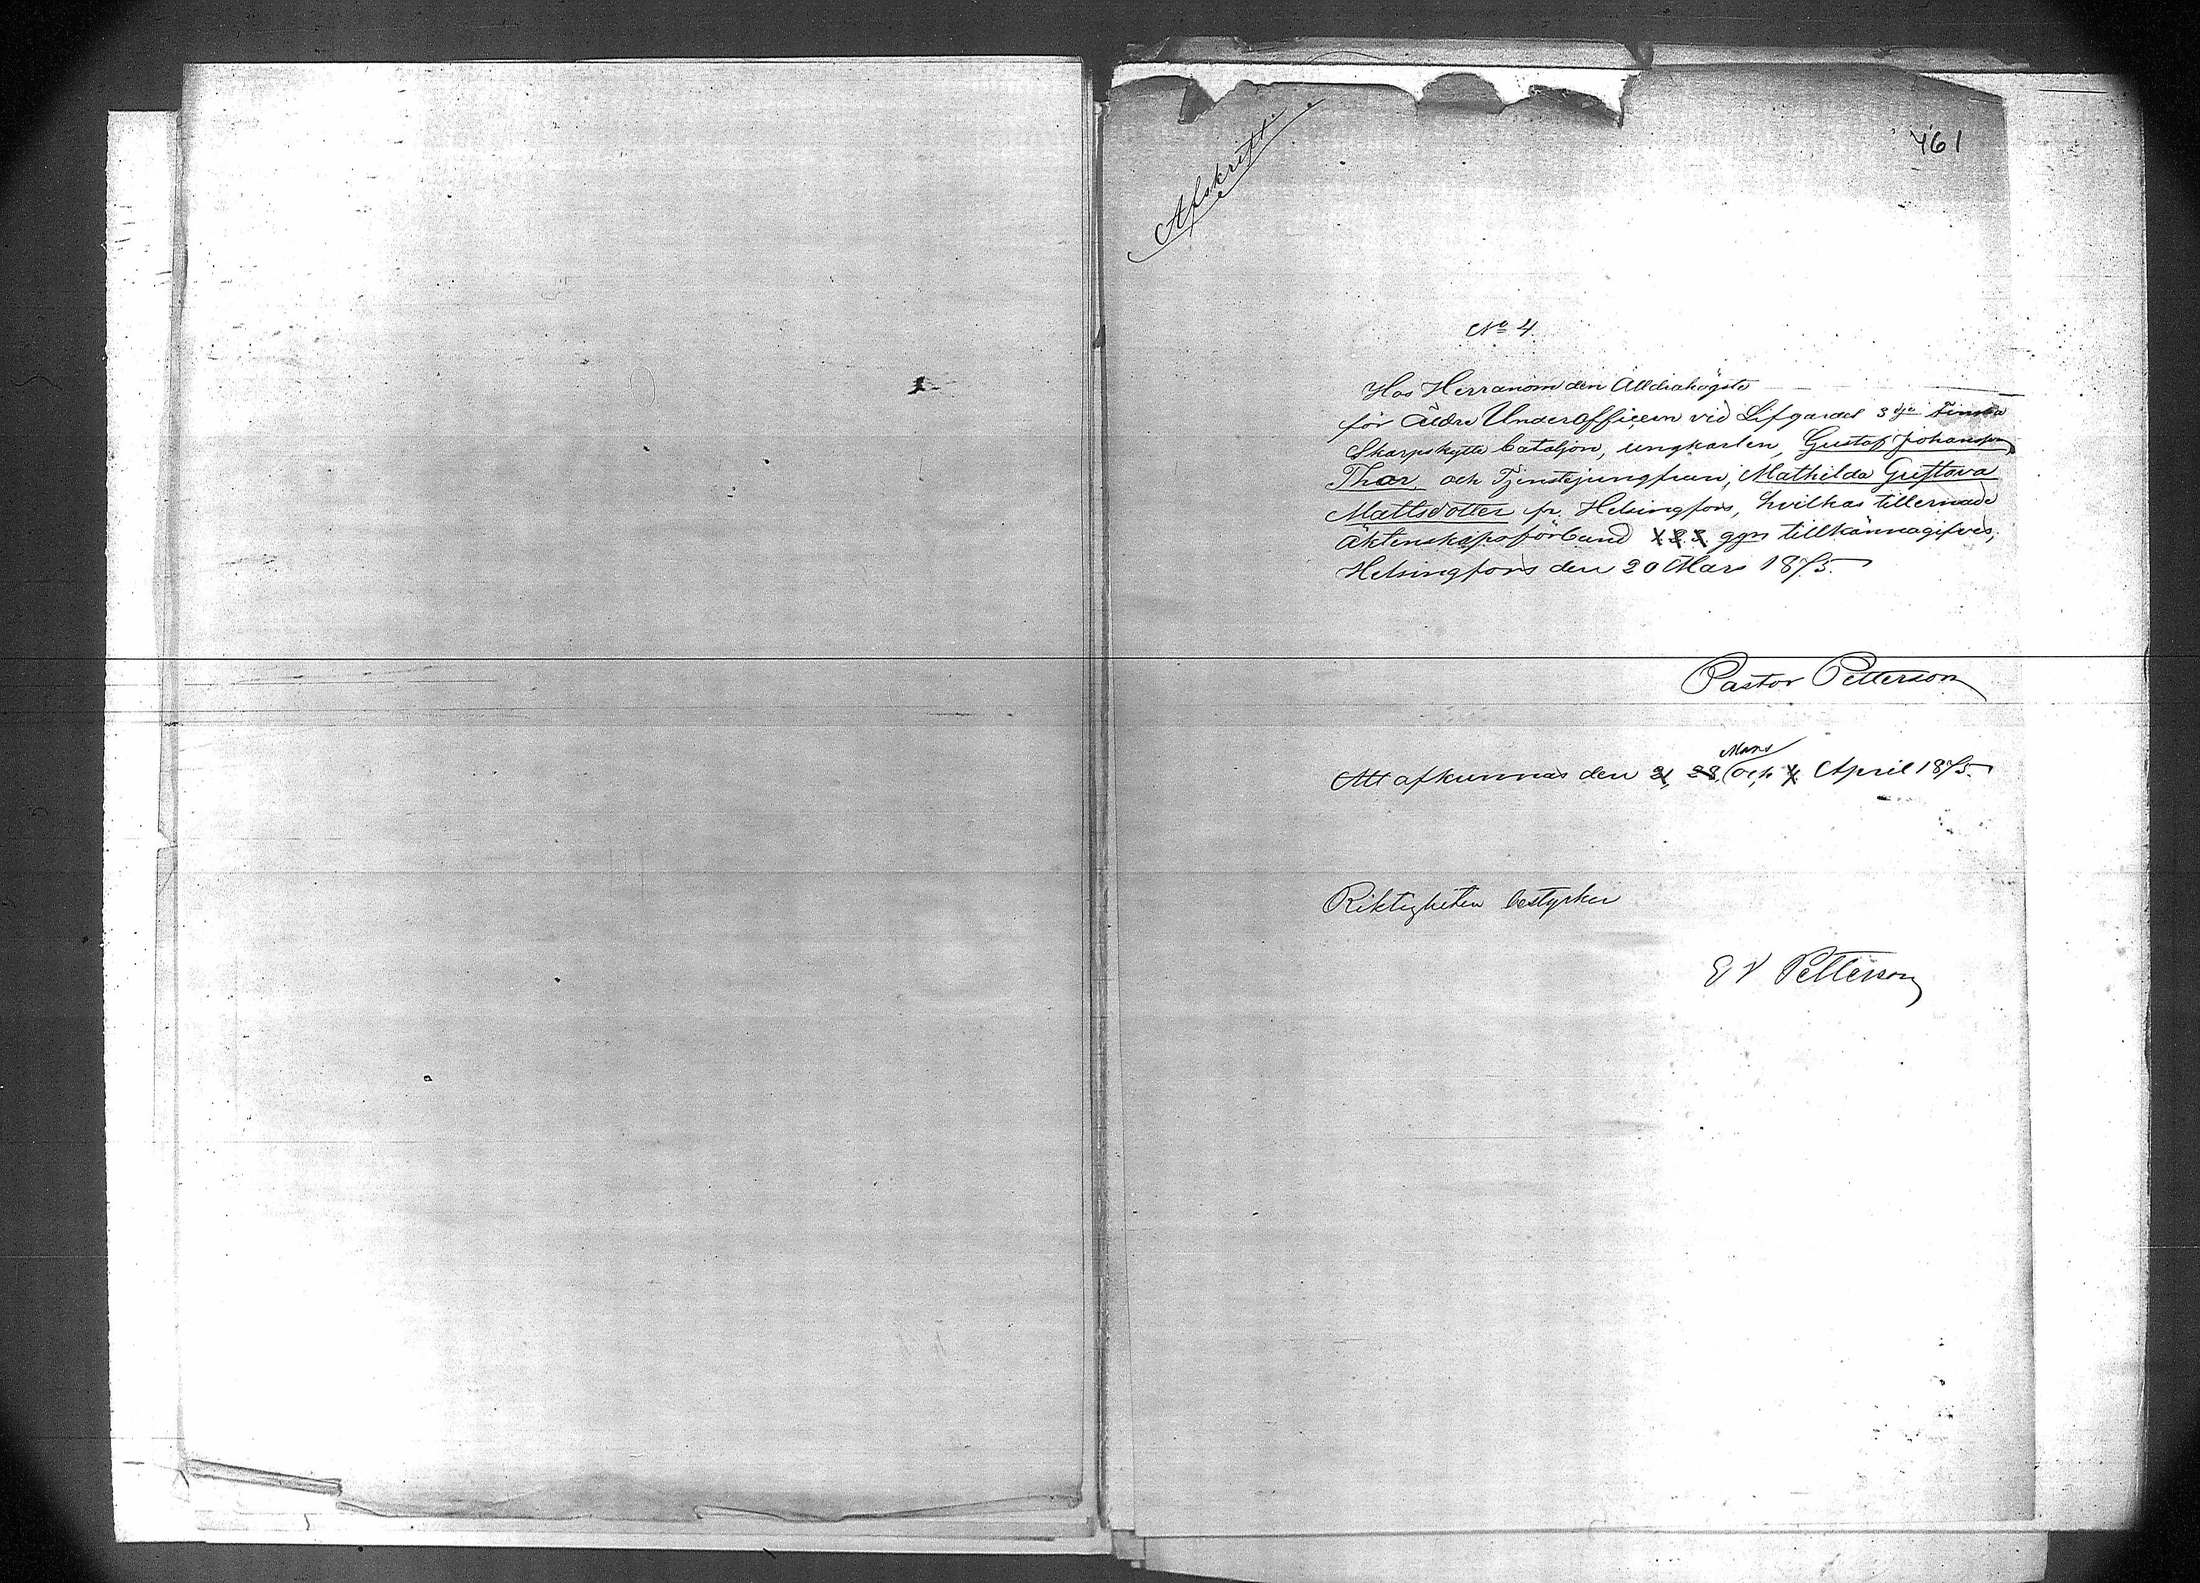 Afskrift.
461
No 4
Hos Herranom den Alldrahögste
för Äldre Underofficern vid Lifgardes 3dje Finska
Skarpskytte bataljon, ungkarlen, Gustaf Johansson
Thor, och Tjenstejungfrun, Mathilda Gustava
Mattsdotter fr. Helsingfors, hvilkas tillernade
Äktenskapsförbund 1 2 3 ggn tillkännagifves,
Helsingfors den 20 Mars 1875.
Pastor Petterson
Mars
Att afkunnas den 21, 28, och April 1875.
Riktigheten bestyrker
Petterson